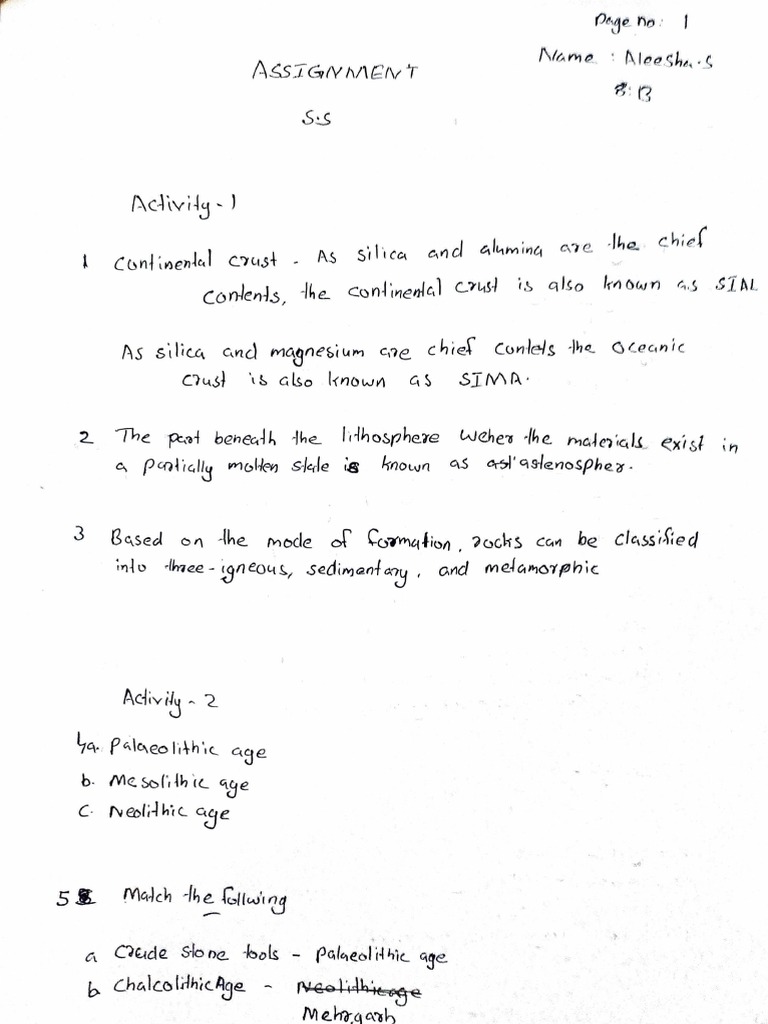 Page no: 1
Name : Aleesha.S
8:B
ASSIGNMENT
S.S
Activity-1
1 Continental crust - As silica and alumina are the chief
contents, the continental crust is also known as SIAL
As silica and magnesium are chief contets the Oceanic
crust is also known as SIMA.
2 The part beneath the lithosphere wcher the materials exist in
a partially molten state is known as ast'astenospher.
3 Based on the mode of formation, rocks can be classified
into three-igneous, sedimentary, and metamorphic
Activity-2
4a. Palaeolithic age
b. Mesolithic age
c. Neolithic age
5 Match the follwing
a Crude stone tools - Palaeolithic age
b Chalcolithic Age - Neolithic age
Mehrgarh